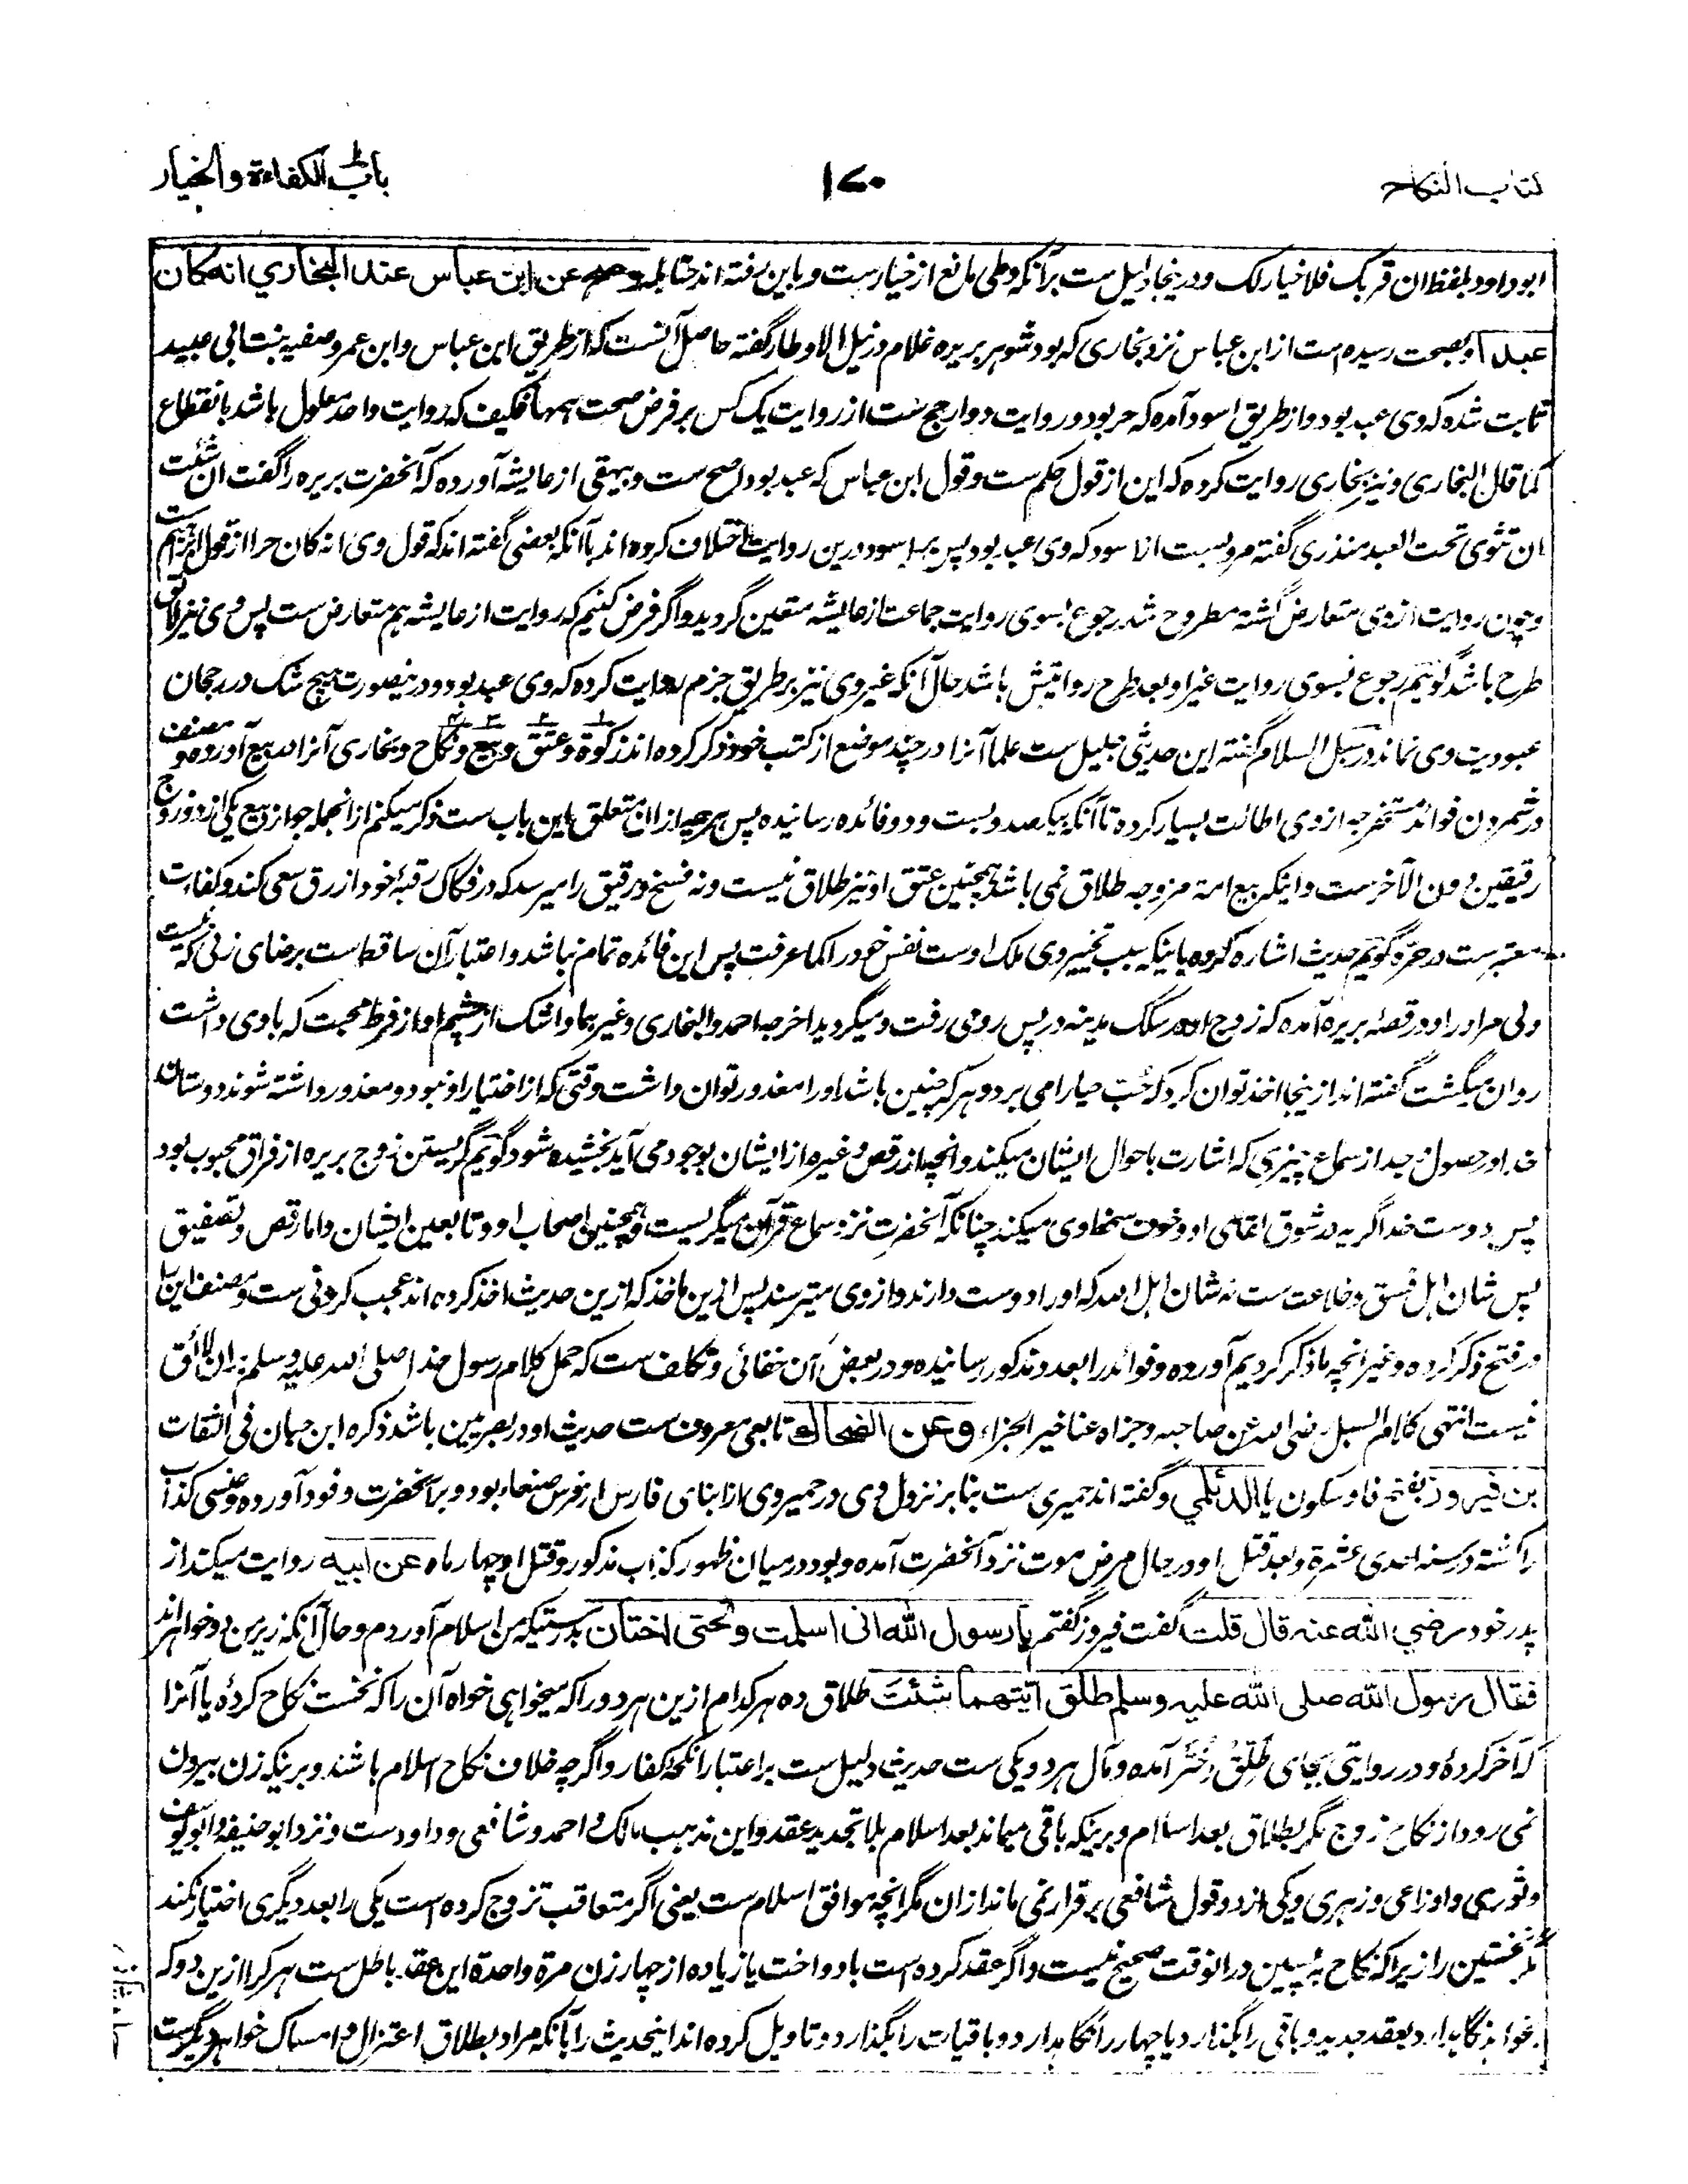 کتاب النکاح
۱۷۰
باب الکفاءة والخیار
ابوداود بلفظ ان قربک فلا خیار لک و درینجا دلیل ست بر آنکه وطی مانع از خیارست و باین رفته اند حنابله وصح عن ابن عباس عند البخاري انه کان
عبدا و بصحت رسیده است از ابن عباس نزد بخاری که بود شوهر بریره غلام در نیل الاوطار گفته حاصل آنست که از طریق ابن عباس و ابن عمر و صفیه بنت ابی عبید
ثابت شده که وی عبد بود و از طریق اسود آمده که حر بود و روایت دو ارجح ست از روایت یک کس بر فرض صحت همه فکیف که روایت واحد معلول باشد بانقطاع
کما قال البخاری و نیز بخاری روایت کرده که این از قول حکم ست و قول ابن عباس که عبد بود اصح ست و بیهقی از عایشه آورده که آنحضرت بریره را گفت ان شئت
ان تثوی تحت العبد منذری گفته مرویست از اسود که وی عبد بود پس بر اسود درین روایت اختلاف کرده اند با آنکه بعضی گفته اند که قول وی انه کان حرا از قول ابراهیم ست
و چون روایت از وی متعارض گشته مطروح شد رجوع بسوی روایت جماعت از عایشه متعین گردید و اگر فرض کنیم که روایت از عایشه هم متعارض ست پس وی نیز لائق
طرح باشد گوئیم رجوع بسوی روایت غیر او بعد طرح روایتش باشد حال آنکه غیر وی نیز بر طریق جزم روایت کرده که وی عبد بود و درینصورت هیچ شک در رجحان
عبودیت وی نماند در سبل السلام گفته این حدیثی جلیل ست علما آنرا در چند موضع از کتب خود ذکر کرده اند زکوة و عتق و بیع و نکاح و بخاری آنرا در بیع آورده و مصنف
در شمردن فوائد مستخرجه از وی اطالت بسیار کرده تا آنکه بیکصد و بست و دو فائده رسانیده پس هرچه از ان متعلق باین باب ست ذکر میکنم از انجمله جواز بیع یکی از دو زوج
رقیقین دون الآخرست و اینکه بیع امة مزوجه طلاق نمی باشد و همچنین عتق او نیز طلاق نیست و نه فسخ و رقیق را میرسد که در فکاک رقبهٔ خود از رق سعی کند و کفاءت
معتبرست در حر و گوئیم حدیث اشاره کرده باینکه سبب تخییر وی ملک اوست نفس خود را کما عرفت پس این فائده تمام نباشد و اعتبار آن ساقط است برضای زنی که نیست
ولی مر او را و در قصهٔ بریره آمده که زوج او در سکک مدینه در پس رو می رفت و میگردید اخرجه احمد و البخاری و غیرهما و اشک از چشم او از فرط محبت که باوی داشت
روان میگشت گفته اند از ینجا اخذ توان کرد که حُب حیا را می برد و هر که چنین باشد او را معذور توان داشت وقتی که از اختیار او نبود و معذور داشته شوند دوستان
خدا در حصول وجد از سماع چیزی که اشارت باحوال ایشان میکند و انچه از رقص و غیره از ایشان بوجود می آید بخشیده شود گوئیم گریستن زوج بریره از فراق محبوب بود
پس دوست خدا گریه در شوق لقای او و خوف سخط وی میکند چنانکه آنحضرت نزد سماع قرآن میگریست و همچنین اصحاب او و تابعین ایشان و اما رقص و تصفیق
پس شان اهل فسق و خلاعت ست نه شان اهل الله که او را دوست دارند و از وی میترسند پس ازین ماخذ که ازین حدیث اخذ کرده اند عجب کردنی ست و مصنف این را
در فتح ذکر کرده و غیر انچه ما ذکر کردیم آورده و فوائد را بعدد مذکور رسانیده و در بعض آن خفائی و تکلف ست که حمل کلام رسول خدا صلی الله علیه وسلم بران لائق
نیست انتهی کلام السبل رضی الله عن صاحبه و جزاه عنا خیر الجزاء وعن الضحاك تابعی معروف ست حدیث او در بصریین باشد ذکره ابن حبان فی الثقات
بن فیروز بفتح فا و سکون یا الدیلمي و گفته اند حمیری ست بنا بر نزول وی در حمیر وی از ابنای فارس از فرس صنعاء بود و بر آنحضرت وفود آورده و عنسی کذاب
را کشته در سنه احدی عشرة و بعد قتل او در حال مرض موت نزد آنحضرت آمده و بود در میان ظهور کذاب مذکور و قتل او چهار ماه عن ابیه روایت میکند از
پدر خود رضي الله عنه قال قلت گفت فیروز گفتم یا رسول الله انی اسلمت وتحتی اختان بدرستیکه من اسلام آوردم و حال آنکه زیر من دو خواهر اند
فقال رسول الله صلی الله علیه وسلم طلق ایتهما شئت طلاق ده هرکدام ازین هر دو را که میخواهی خواه آن را که نخست نکاح کردهٔ یا آنرا
که آخر کردهٔ و در روایتی بجای طلق اختر آمده و مآل هر دو یکی ست حدیث دلیل ست بر اعتبار انکحهٔ کفار و اگرچه خلاف نکاح اسلام باشند و برینکه زن بیرون
نمی رود از نکاح زوج مگر بطلاق بعد اسلام و برینکه باقی میماند بعد اسلام بلا تجدید عقد و این مذهب مالک و احمد و شافعی و داود ست و نزد ابو حنیفه و ابو یوسف
و ثوری و اوزاعی و زهری و یکی از دو قول شافعی برقرار نمی ماند از ان مگر انچه موافق اسلام ست یعنی اگر متعاقب تزوج کرده است یکی را بعد دیگری اختیار نکند
مگر نخستین را زیرا که نکاح پسین در انوقت صحیح نیست و اگر عقد کرده است با دو اخت یا زیاده از چهار زن مرة واحدة این عقد باطل ست هر کرا ازین دو که
بخواهد نگاهدارد بعقد جدید و باقی را بگذارد یا چهار را نگاهدارد و باقیات را بگذارد و تاویل کرده اند اینحدیث را بآنکه مراد بطلاق اعتزال و امساک خواهر دیگرست